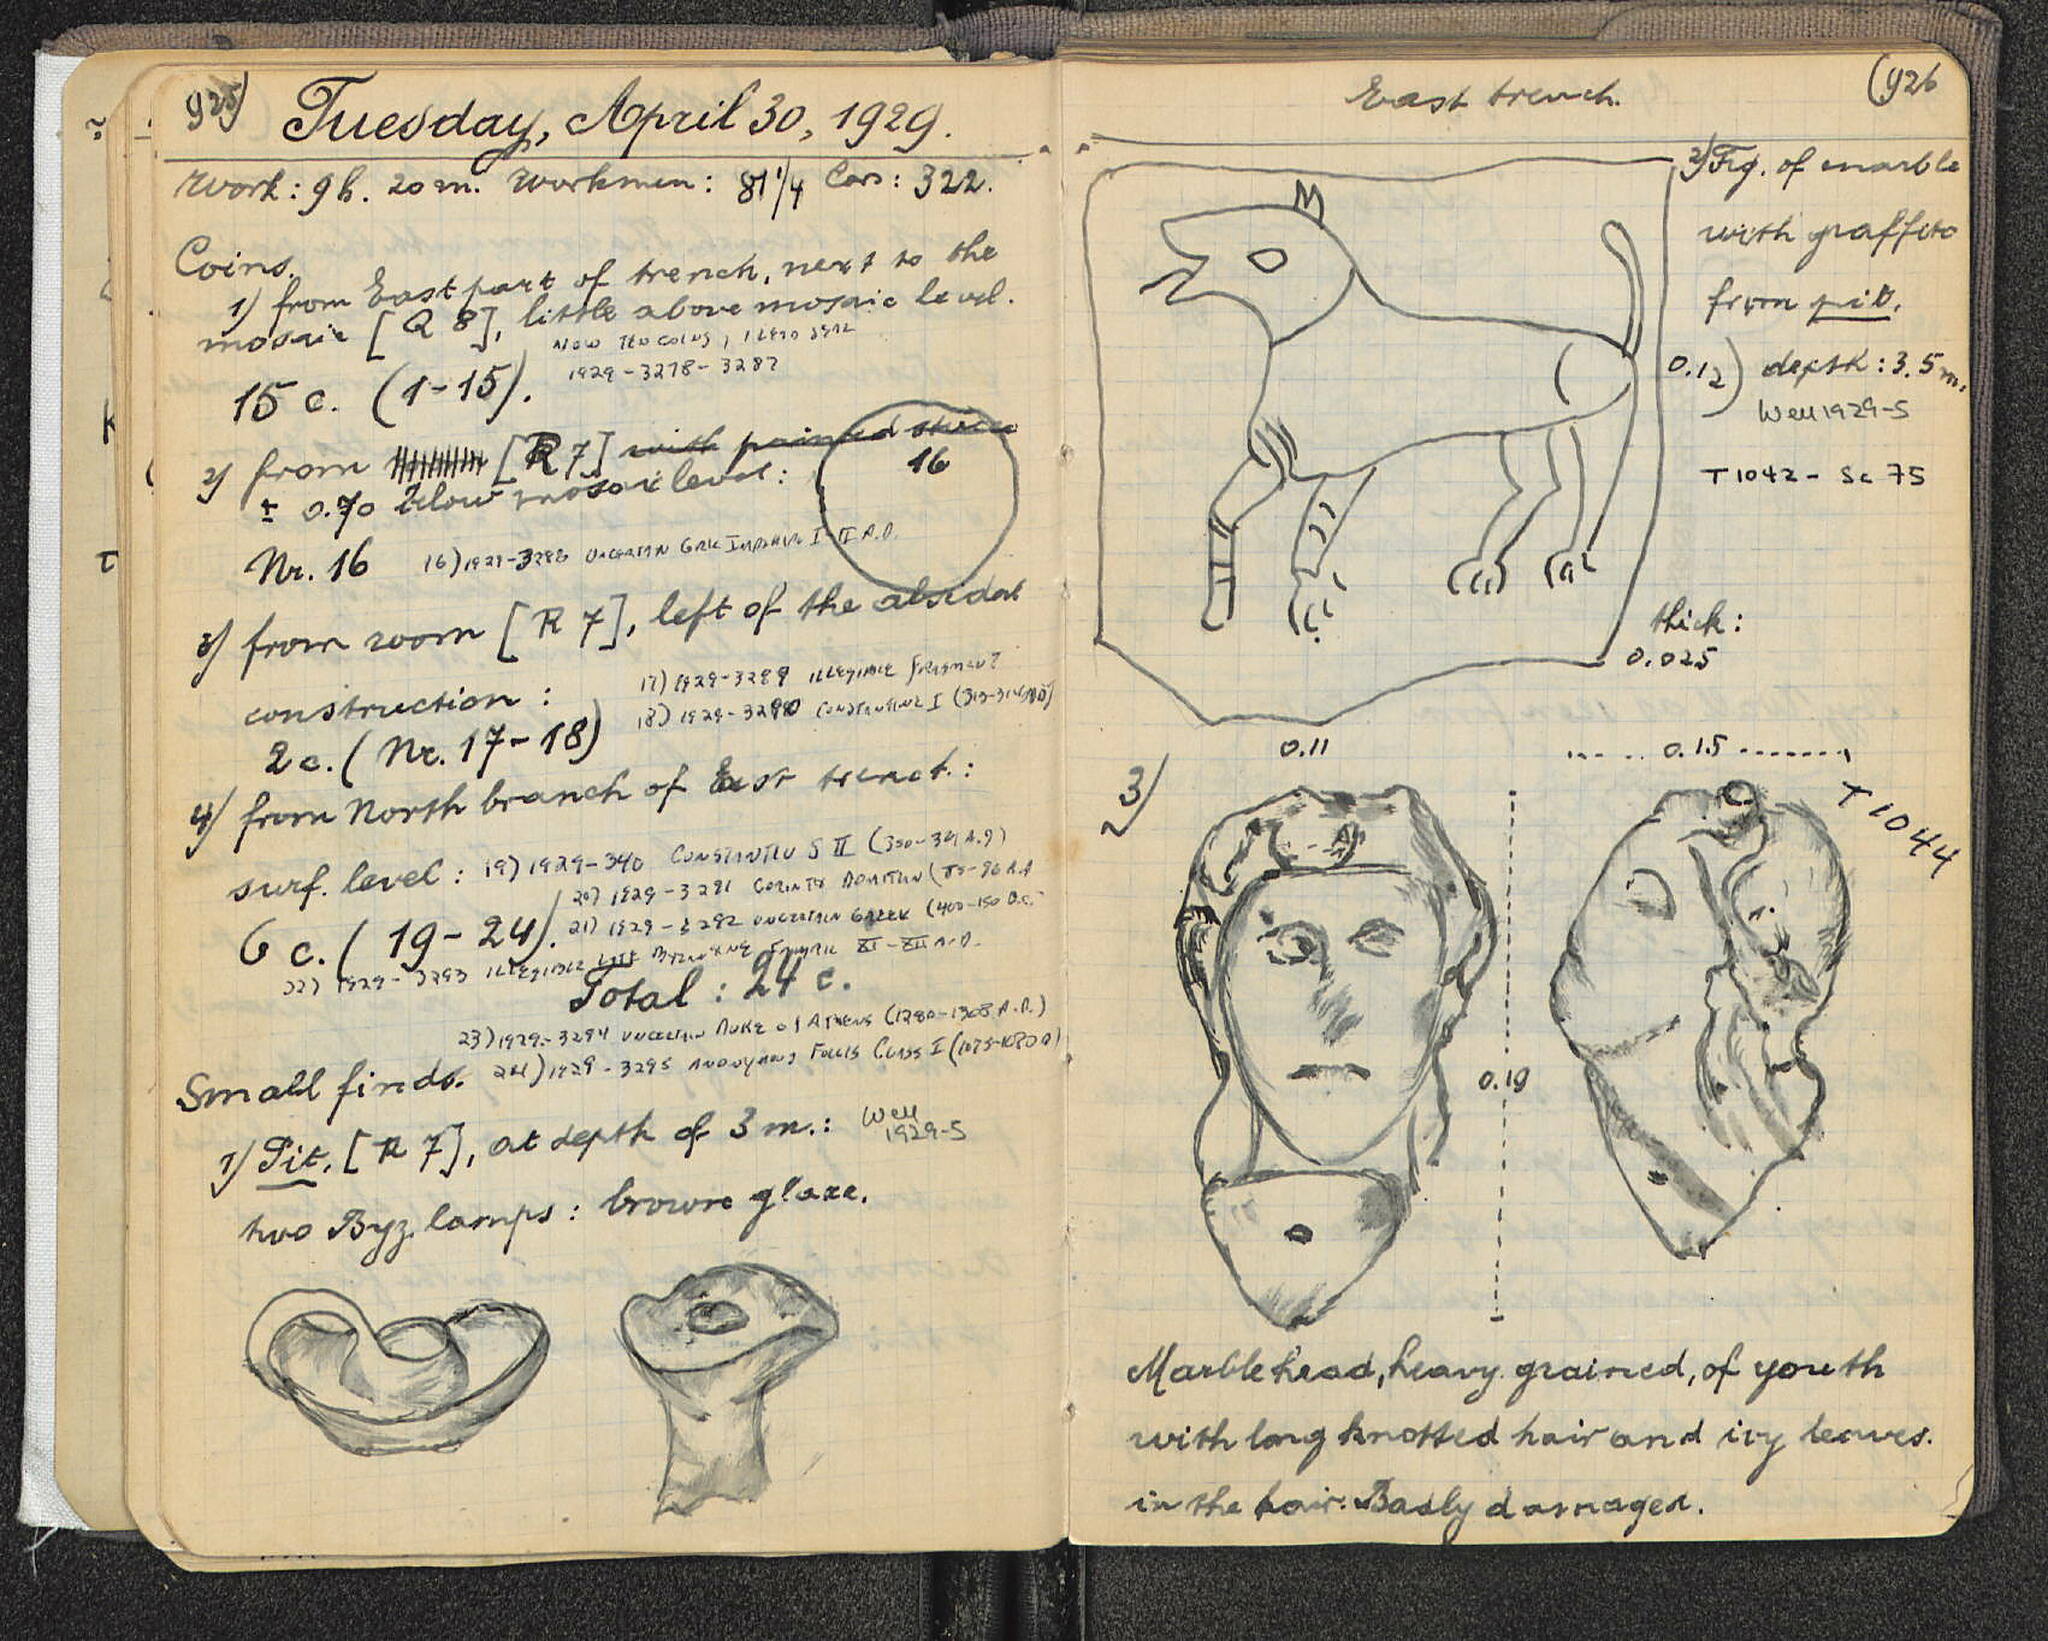 925)
Tuesday, April 30, 1929.
Work: 9h. 20m. Workmen: 81 1/4 Cars: 322.
Coins.
1) from East part of trench, next to the
mosaic [Q 8], little above mosaic level.
NOW TEN COINS, ILLEG
1929-3278-3287
15 c. (1-15).
2) from [R 7] with painted stucco
± 0.70 below mosaic level:
16
Nr. 16 16) 1929-3288 UNCERTAIN GRK IMPERIAL I-II A.D.
3) from room [R 7], left of the absidal
construction :
17) 1929-3289 ILLEGIBLE FRAGMENT
18) 1929-3290 CONSTANTINE I (313-314 AD)
2c. (Nr. 17-18)
4) from North branch of East trench.:
surf. level : 19) 1929-340 CONSTANTIUS II (350-361 A.D)
20) 1929-3291 CORINTH DOMITIAN (85-96 A.D
21) 1929-3292 UNCERTAIN GREEK (400-150 B.C.
6 c. ( 19-24).
22) 1929-3293 ILLEGIBLE LATE BYZANTINE EMPIRE XI-XII A.D.
Total : 24 c.
23) 1929-3294 UNCERTAIN DUKE of ATHENS (1280-1308 A.D.)
24) 1929-3295 ANONYMOUS FOLLIS CLASS I (1075-1080 AD)
Small finds.
1) Pit. [R 7], at depth of 3 m.: Well
1929-5
two Byz. lamps: brown glaze.
East trench.
(926
2) Frg. of marble
with graffito
from pit.
0.12) depth: 3.5 m.
Well 1929-5
T 1042 - Sc 75
thick:
0.025
0.11
0.15
3)
T 1044
0.19
Marble head, heavy grained, of youth
with long knotted hair and ivy leaves.
in the hair. Badly damaged.